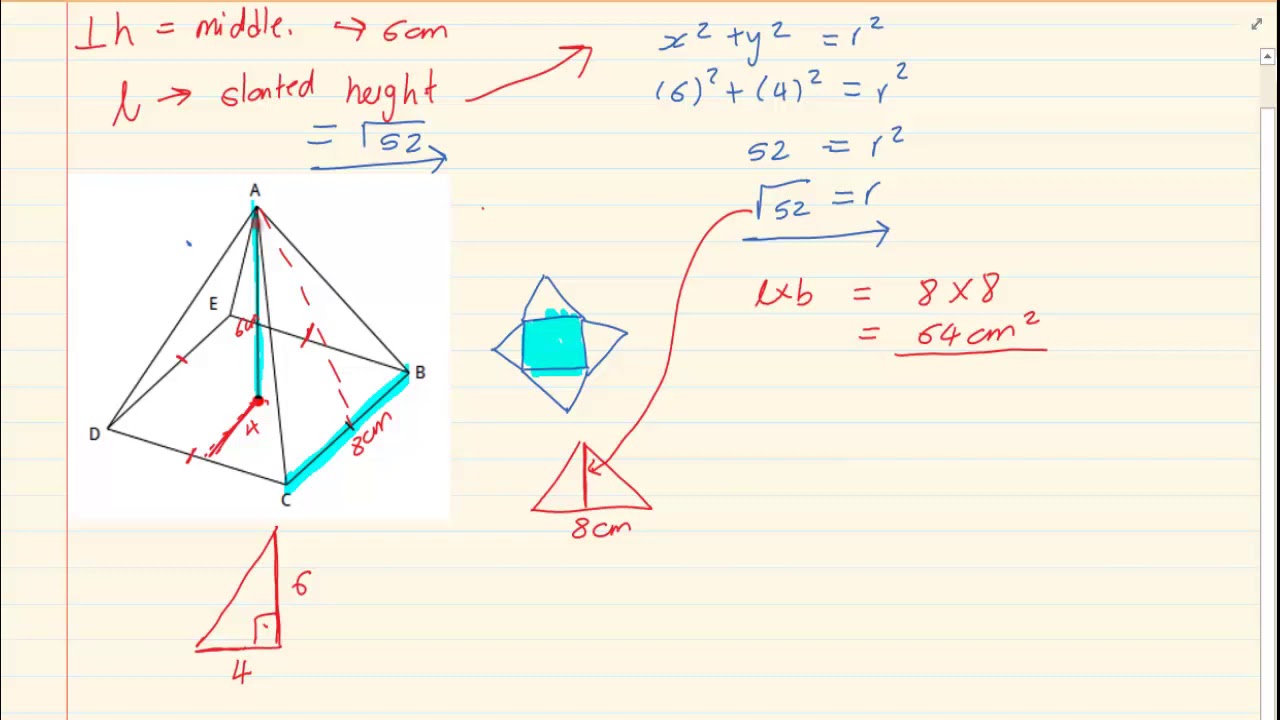 ⊥h = middle. → 6cm
l → slanted height
= √52
x² + y² = r²
(6)² + (4)² = r²
52 = r²
√52 = r
l×b = 8 × 8
= 64cm²
A
E
6cm
B
D
4
8cm
C
8cm
6
4